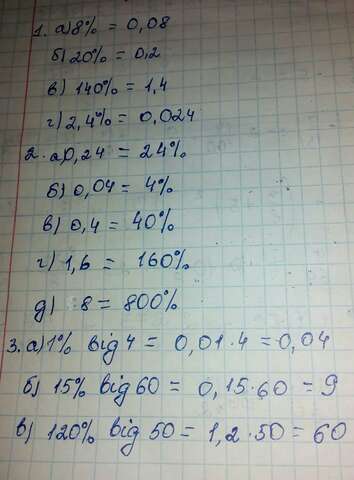 1. а) 8% = 0,08
б) 20% = 0,2
в) 140% = 1,4
г) 2,4% = 0,024
2. а) 0,24 = 24%
б) 0,04 = 4%
в) 0,4 = 40%
г) 1,6 = 160%
д) 8 = 800%
3. а) 1% від 4 = 0,01·4 = 0,04
б) 15% від 60 = 0,15·60 = 9
в) 120% від 50 = 1,2·50 = 60